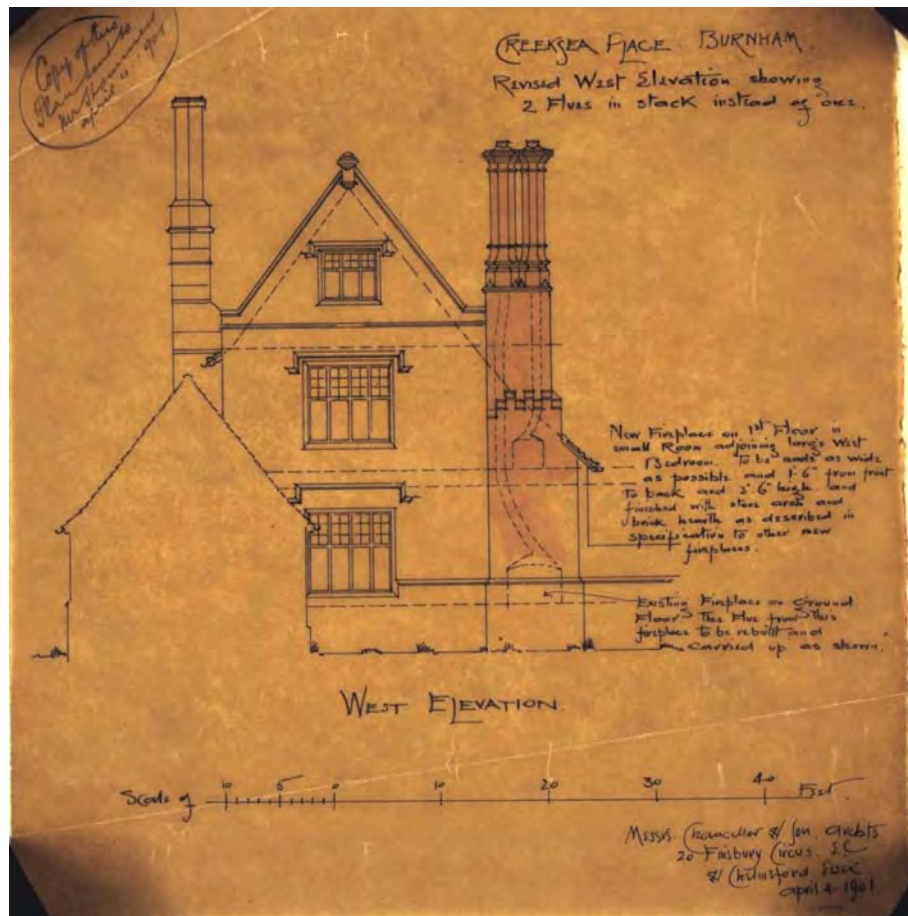 Copy of this
Plan sent to
Mr
April 11 1901
CREEKSEA PLACE. BURNHAM.
Revised West Elevation showing
2 Flues in stack instead of one.
New Fireplace on 1st Floor in
small Room adjoining large West
Bedroom. To be made as wide
as possible and 1'.6" from front
to back and 3'.6" high and
finished with stone arch and
brick hearth as described in
specification to other new
fireplaces.
Existing Fireplace on Ground
Floor. The Flue from this
fireplace to be rebuilt and
carried up as shown.
WEST ELEVATION.
Scale of 10 5 0 10 20 30 40 Feet.
Messrs. Chancellor & Son. archts
20 Finsbury Circus. E.C
& Chelmsford Essex
april 4 1901